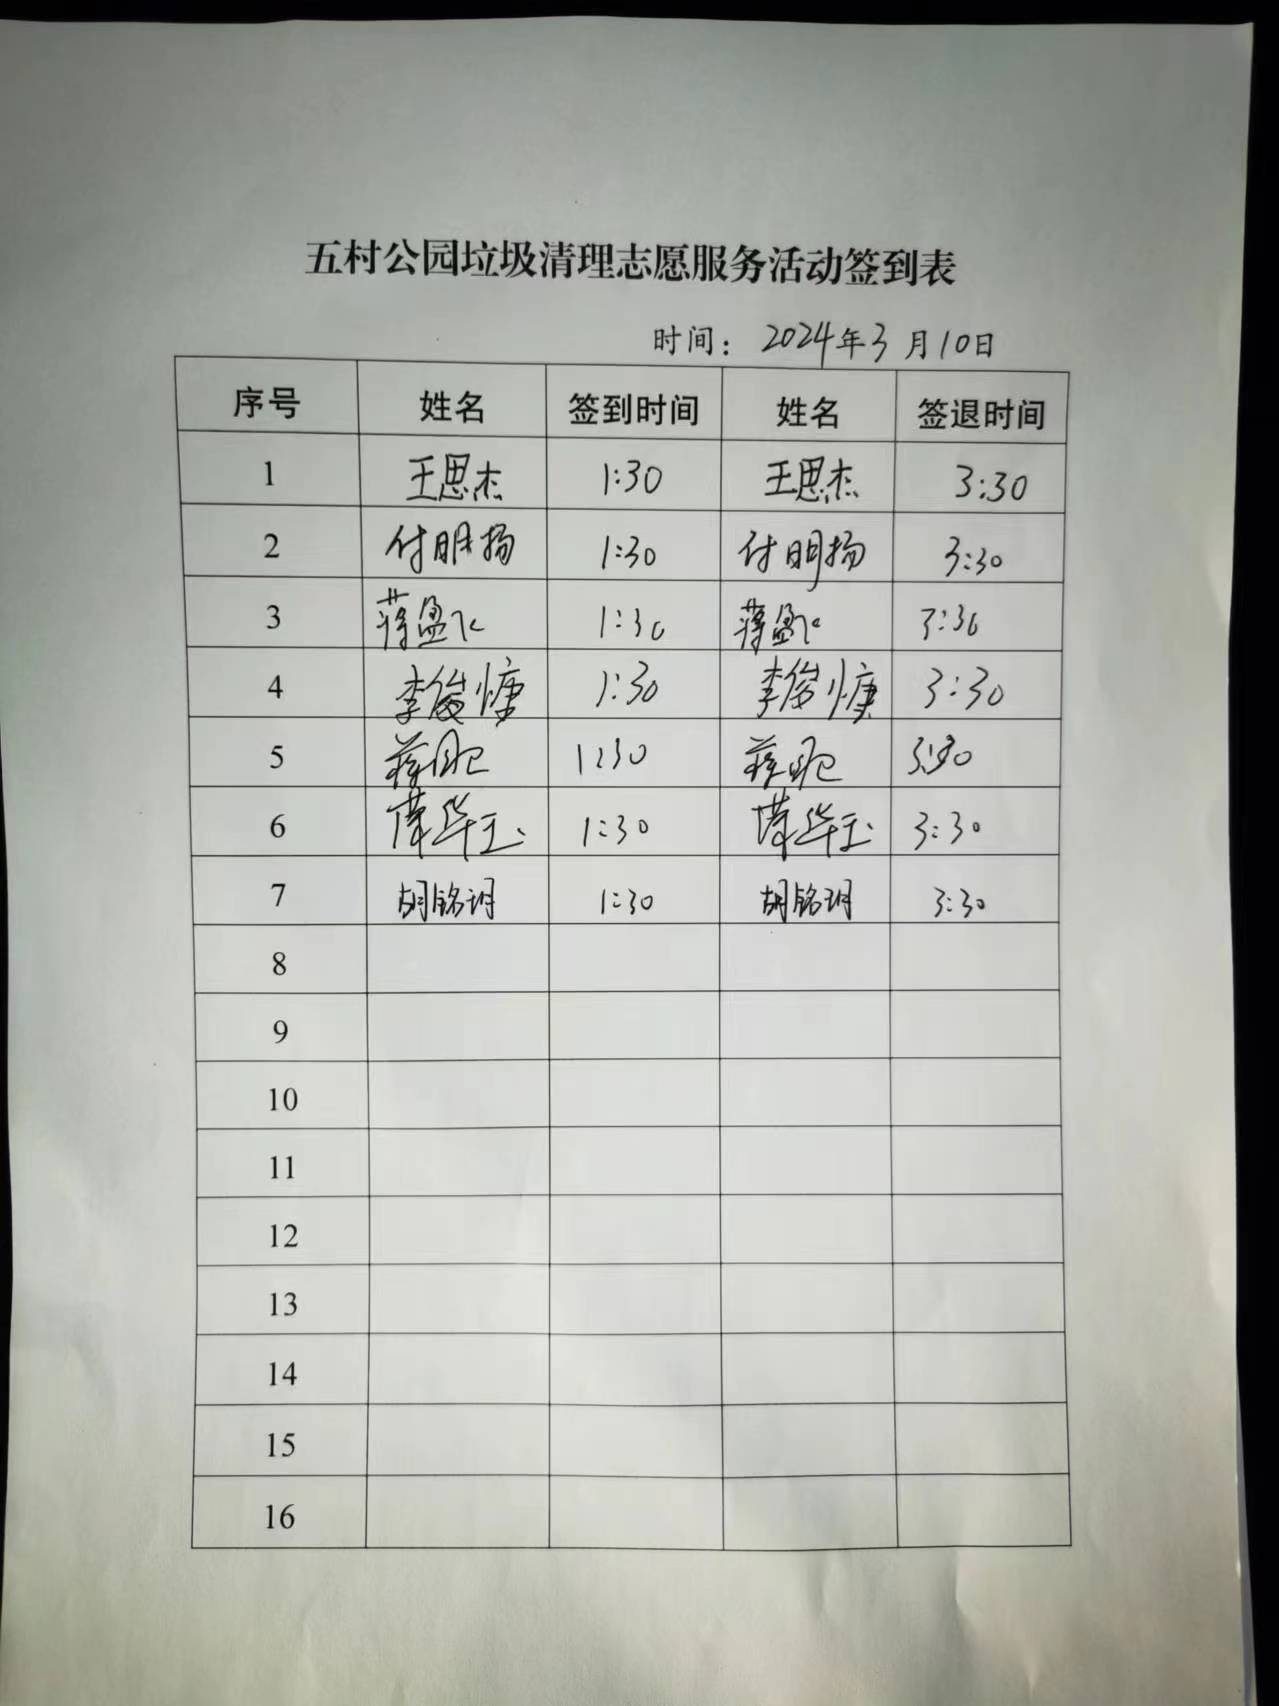 五村公园垃圾清理志愿服务活动签到表
时间：2024年3月10日
序号 姓名 签到时间 姓名 签退时间
1 王思杰 1:30 王思杰 3:30
2 付明扬 1:30 付明扬 3:30
3 蒋盈飞 1:30 蒋盈飞 3:30
4 李俊慷 1:30 李俊慷 3:30
5 1:30 3:30
6 1:30 3:30
7 胡铭玥 1:30 胡铭玥 3:30
8
9
10
11
12
13
14
15
16